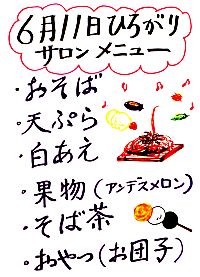 6月11日ひろがり
サロンメニュー
・おそば
・天ぷら
・白あえ
・果物(アンデスメロン)
・そば茶
・おやつ(お団子)